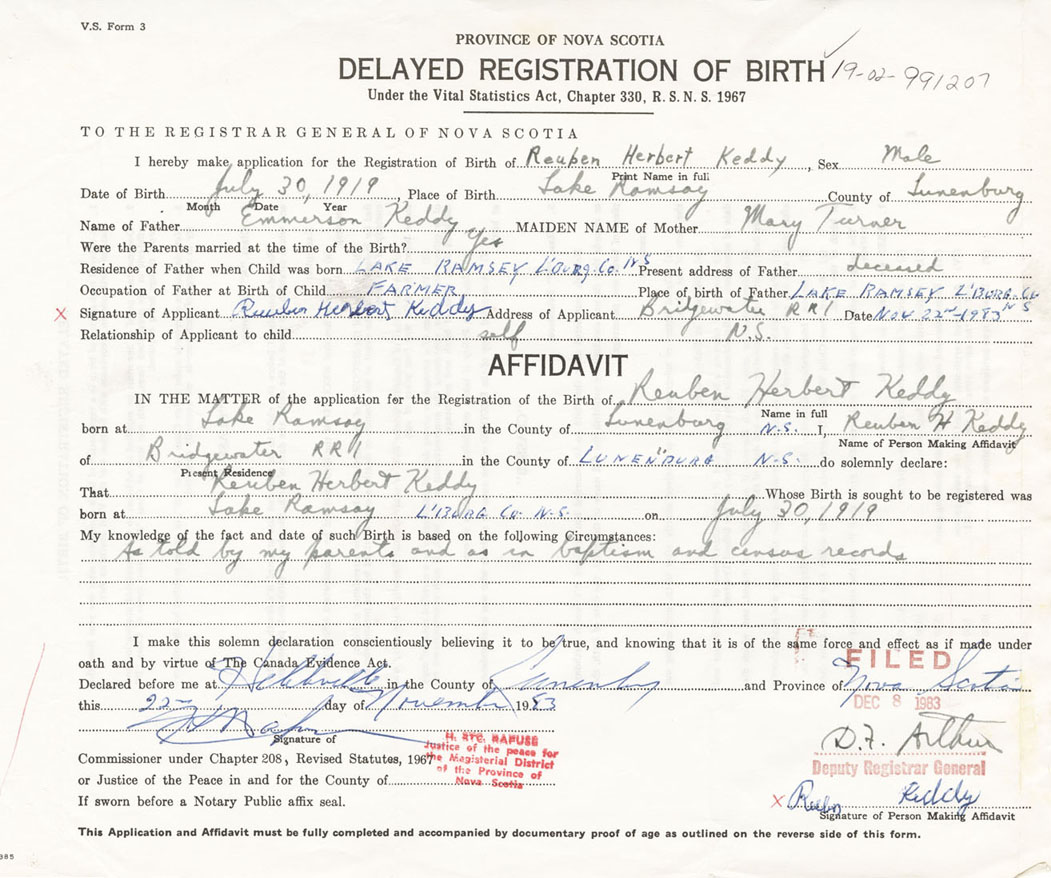 V.S. Form 3
PROVINCE OF NOVA SCOTIA
DELAYED REGISTRATION OF BIRTH 19-02-991207
Under the Vital Statistics Act, Chapter 330, R.S.N.S. 1967
TO THE REGISTRAR GENERAL OF NOVA SCOTIA
I hereby make application for the Registration of Birth of Reuben Herbert Keddy, Sex Male
Print Name in full
Date of Birth July 30, 1919 Place of Birth Lake Ramsay County of Lunenburg
Month Date Year
Name of Father Emmerson Keddy MAIDEN NAME of Mother Mary Turner
Were the Parents married at the time of the Birth? Yes
Residence of Father when Child was born LAKE RAMSEY L'BURG. Co. NS Present address of Father deceased
Occupation of Father at Birth of Child FARMER Place of birth of Father LAKE RAMSEY L'BURG. Co NS
X Signature of Applicant Reuben Herbert Keddy Address of Applicant Bridgewater RR1 Date Nov 22nd-1983
Relationship of Applicant to child self N.S.
AFFIDAVIT
IN THE MATTER of the application for the Registration of the Birth of Reuben Herbert Keddy
Name in full
born at Lake Ramsay in the County of Lunenburg N.S. I, Reuben H Keddy
Name of Person Making Affidavit
of Bridgewater RR1 in the County of LUNENBURG N.S. do solemnly declare:
Present Residence
That Reuben Herbert Keddy Whose Birth is sought to be registered was
born at Lake Ramsay L'BURG Co. N.S. on July 30, 1919
My knowledge of the fact and date of such Birth is based on the following Circumstances:
As told by my parents and as in baptism and census records
I make this solemn declaration conscientiously believing it to be true, and knowing that it is of the same force and effect as if made under
oath and by virtue of The Canada Evidence Act.
FILED
Declared before me at Hebbville in the County of Lunenburg and Province of Nova Scotia
DEC 8 1983
this 22nd day of November 1983
Signature of
D.F. Arthur
Deputy Registrar General
H. STC. KAPUSE
Justice of the peace for
the Magisterial District
of the Province of
Nova Scotia
Commissioner under Chapter 208, Revised Statutes, 1967
or Justice of the Peace in and for the County of
X Reuben Keddy
Signature of Person Making Affidavit
If sworn before a Notary Public affix seal.
This Application and Affidavit must be fully completed and accompanied by documentary proof of age as outlined on the reverse side of this form.